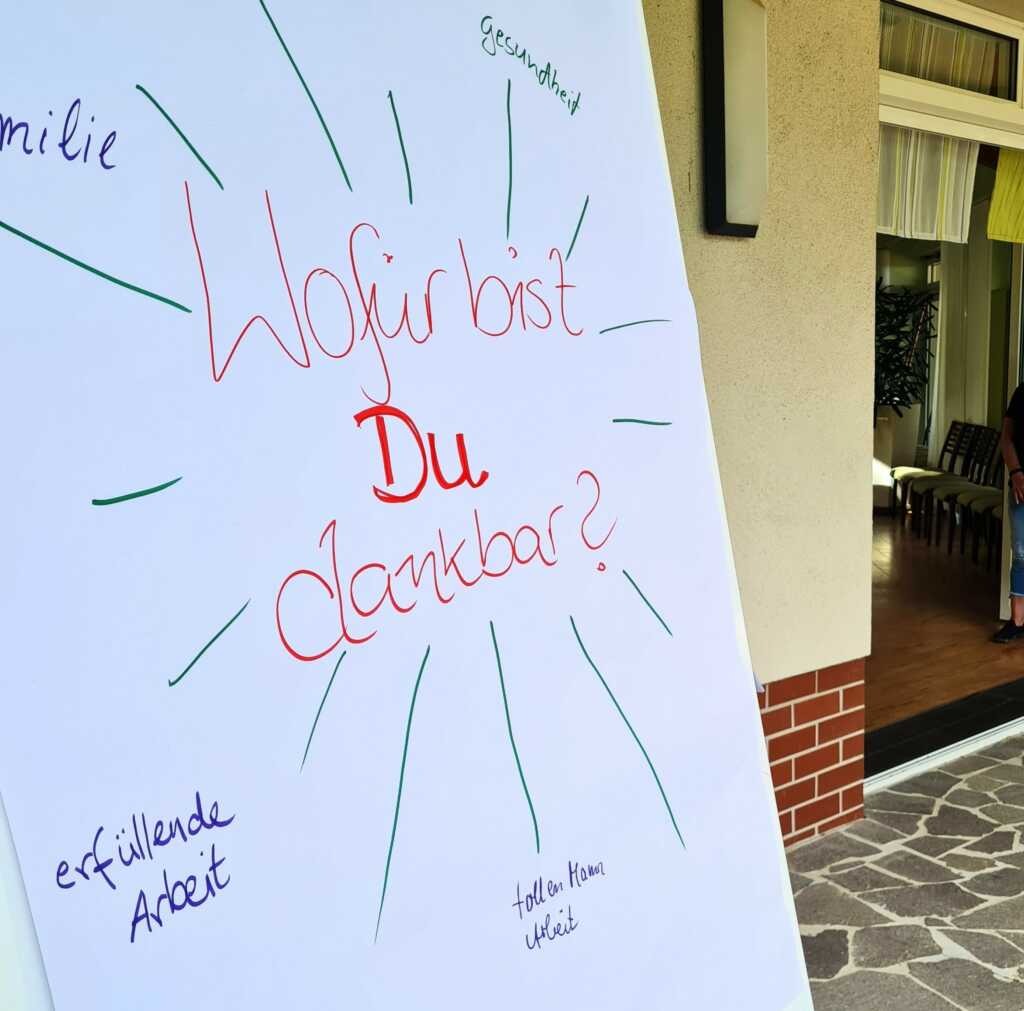 gesundheit
milie
Wofür bist
Du
dankbar?
erfüllende
Arbeit
tollen Mann
Arbeit